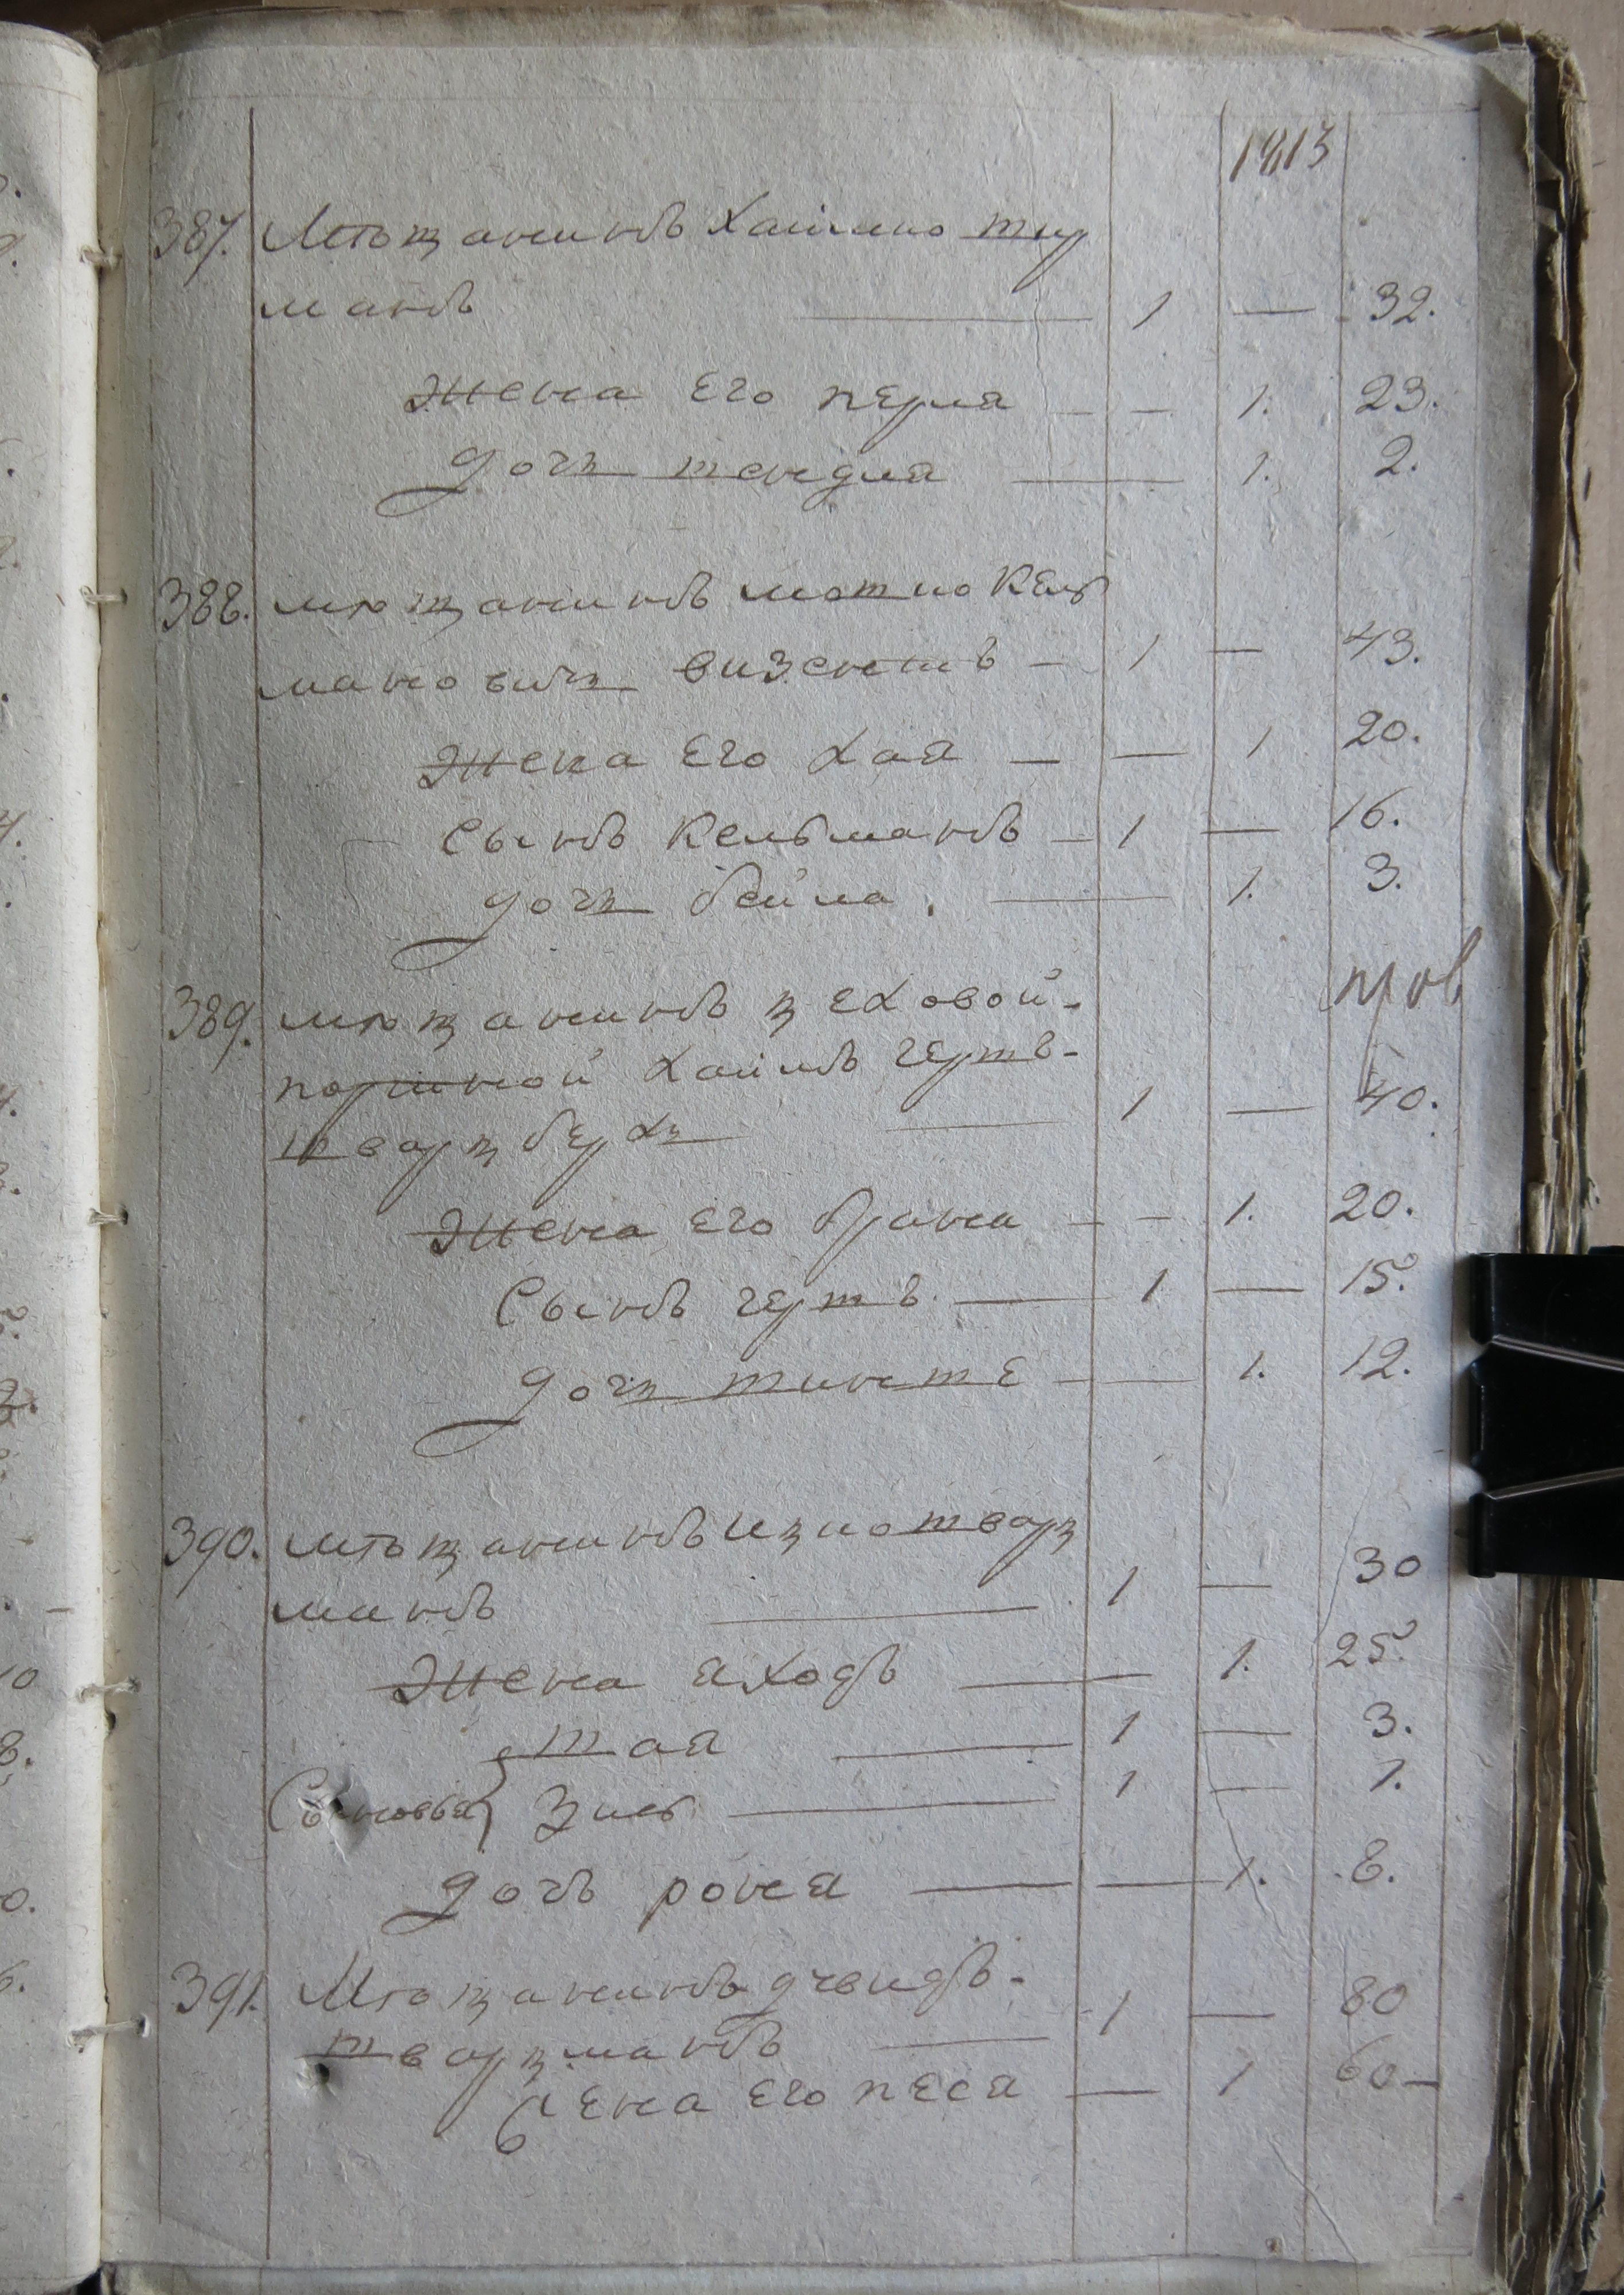 1813
387. Мѣщанинъ Хаимъ Шу
манъ — 1 — 32.
Жена Его перля — — 1. 23.
дочь шендля — 1. 2.
388. мѣщанинъ мошно Кель
мановичь визентъ — 1 — 43.
Жена Его Хая — — 1 20.
Сынъ Кельманъ — 1 — 16.
дочь бейла. — 1. 3.
пров
389. мѣщанинъ цеховой-
портной Хаимъ герть-
шварцберхъ — 1 — 40.
Жена Его брана — — 1. 20.
Сынъ гертъ. — 1 — 15.
дочь тинте — 1. 12.
390. мѣщанинъ Ицко шварц
манъ — 1 — 30
Жена яходъ — 1. 25.
шая — 1 — 3.
Сыновья} Зись — 1 — 1.
дочь роня — — 1. 8.
391. Мѣщанинъ давидъ-
шварцманъ — 1 — 80
жена Его песя — 1 60 —